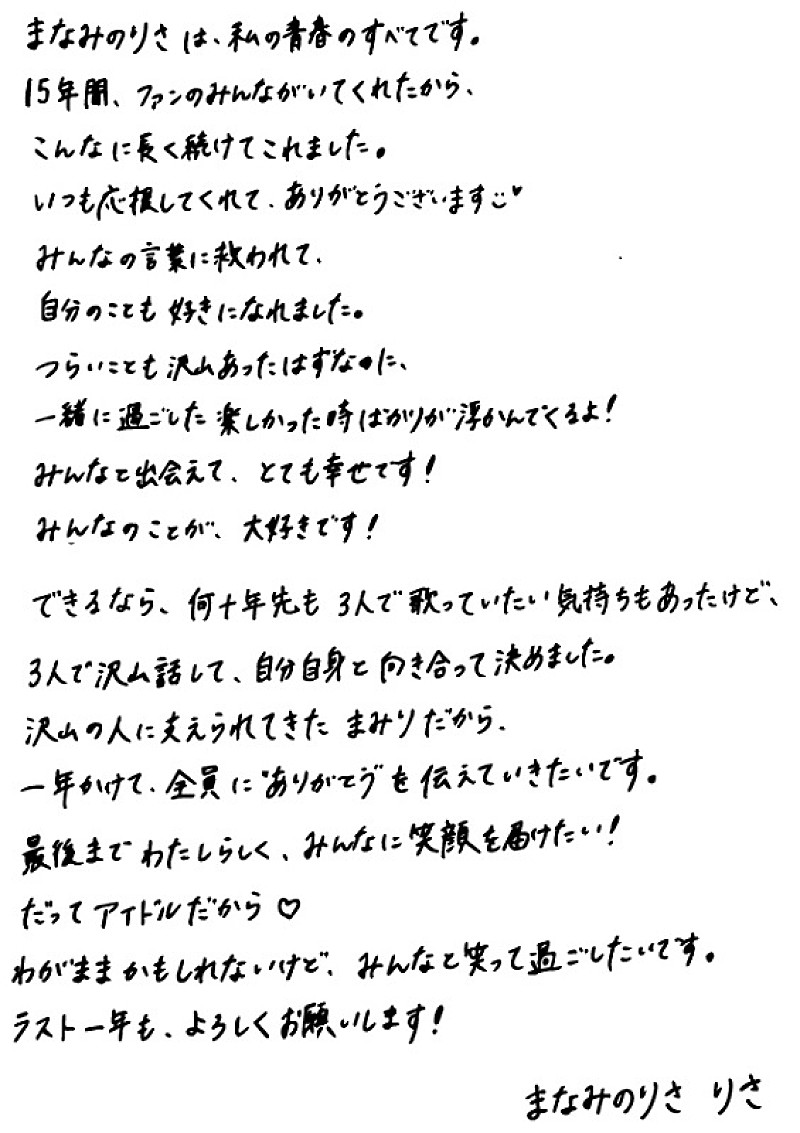 まなみのりさは、私の青春のすべてです。
15年間、ファンのみんながいてくれたから、
こんなに長く続けてこれました。
いつも応援してくれて、ありがとうございます
みんなの言葉に救われて、
自分のことも好きになれました。
つらいことも沢山あったはずなのに、
一緒に過ごした楽しかった時ばかりが浮かんでくるよ!
みんなと出会えて、とても幸せです!
みんなのことが、大好きです!
できるなら、何十年先も3人で歌っていたい気持ちもあったけど、
3人で沢山話して、自分自身と向き合って決めました。
沢山の人に支えられてきたまみりだから、
一年かけて、全員に"ありがとう"を伝えていきたいです。
最後までわたしらしく、みんなに笑顔を届けたい!
だってアイドルだから♡
わがままかもしれないけど、みんなと笑って過ごしたいです。
ラスト一年も、よろしくお願いします!
まなみのりさ りさ